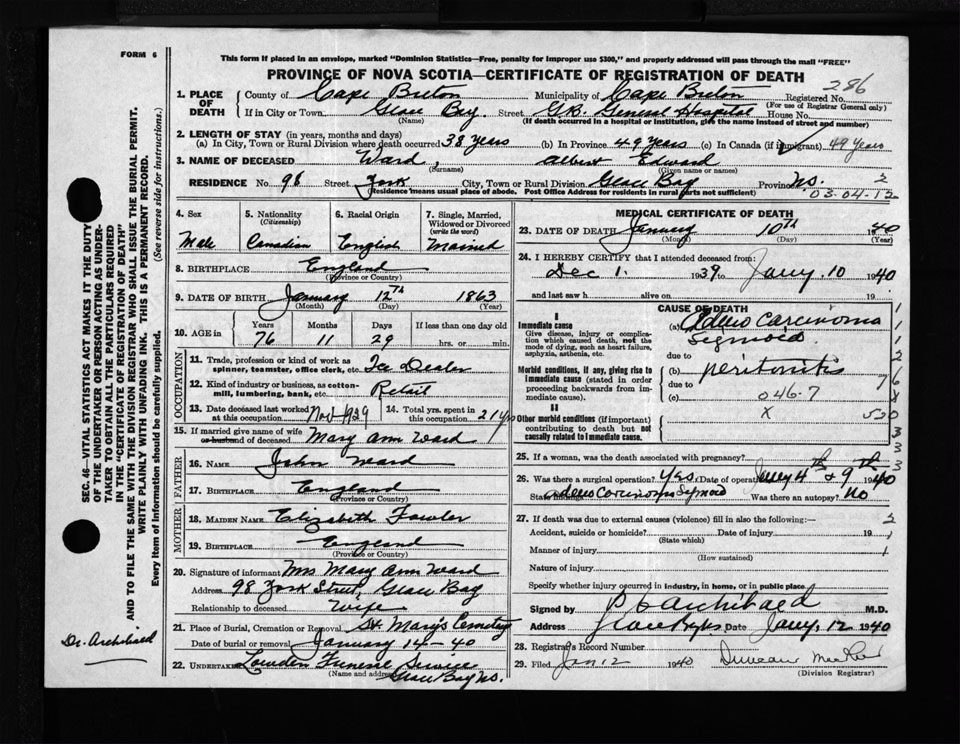 FORM 6
This form if placed in an envelope, marked "Dominion Statistics—Free, penalty for improper use $300," and properly addressed will pass through the mail "FREE"
PROVINCE OF NOVA SCOTIA—CERTIFICATE OF REGISTRATION OF DEATH
286
1. PLACE OF DEATH
County of Cape Breton Municipality of Cape Breton Registered No.
(For use of Registrar General only)
If in City or Town Glace Bay Street G.B. General Hospital House No.
(Name) (If death occurred in a hospital or institution, give the name instead of street and number)
2. LENGTH OF STAY (in years, months and days)
(a) In City, Town or Rural Division where death occurred 38 years (b) In Province 49 years (c) In Canada (if immigrant) 49 years
3. NAME OF DECEASED Ward, Albert Edward
(Surname) (Given name or names)
RESIDENCE No. 98 Street York City, Town or Rural Division Glace Bay Province N.S. 2
(Residence means usual place of abode. Post Office Address for residents in rural parts not sufficient)
03-04-12
4. Sex
Male
5. Nationality
(Citizenship)
Canadian
6. Racial Origin
English
7. Single, Married, Widowed or Divorced
(write the word)
Married
8. BIRTHPLACE England
(Province or Country)
9. DATE OF BIRTH January 12th 1863
(Month) (Day) (Year)
10. AGE in Years Months Days If less than one day old
76 11 29 hrs. or min.
OCCUPATION
11. Trade, profession or kind of work as spinner, teamster, office clerk, etc. Tea Dealer
12. Kind of industry or business, as cotton-mill, lumbering, bank, etc. Retail
13. Date deceased last worked at this occupation Nov 1939 14. Total yrs. spent in this occupation 21 yrs
15. If married give name of wife or husband of deceased Mary Ann Ward
FATHER
16. NAME John Ward
17. BIRTHPLACE England
(Province or Country)
MOTHER
18. MAIDEN NAME Elizabeth Fowler
19. BIRTHPLACE England
(Province or Country)
20. Signature of informant Mrs Mary Ann Ward
Address 98 York Street, Glace Bay
Relationship to deceased Wife
21. Place of Burial, Cremation or Removal St. Mary's Cemetery
Date of burial or removal January 14 - 40
22. UNDERTAKER Lowden Funeral Service
(Name and address) Glace Bay N.S.
MEDICAL CERTIFICATE OF DEATH
23. DATE OF DEATH January 10th 1940
(Month) (Day) (Year)
24. I HEREBY CERTIFY that I attended deceased from:
Dec 1. 1939 to Jany. 10 1940
and last saw h alive on 19
CAUSE OF DEATH
I
Immediate cause
Give disease, injury or complication which caused death, not the mode of dying, such as heart failure, asphyxia, asthenia, etc.
(a) Adeno carcinoma Sigmoid.
due to
Morbid conditions, if any, giving rise to immediate cause (stated in order proceeding backwards from immediate cause).
(b) peritonitis
due to
(c) 046-7
II
Other morbid conditions (if important) contributing to death but not causally related to immediate cause.
x 530
1
1
1
2
6
7 8
3
3
3
25. If a woman, was the death associated with pregnancy?
26. Was there a surgical operation? Yes. Date of operation Jany 4th & 9th 1940
State findings Adeno carcinoma Sigmoid Was there an autopsy? No
27. If death was due to external causes (violence) fill in also the following:—
Accident, suicide or homicide? Date of injury 19
(State which)
Manner of injury
(How sustained)
Nature of injury
Specify whether injury occurred in industry, in home, or in public place
Signed by Archibald M.D.
Address Glace Bay Date Jany, 12 1940
28. Registrar's Record Number
29. Filed Jan 12 1940 Duncan
(Division Registrar)
SEC. 46—VITAL STATISTICS ACT MAKES IT THE DUTY
OF THE UNDERTAKER OR PERSON ACTING AS UNDERTAKER TO OBTAIN ALL THE PARTICULARS REQUIRED
IN THE "CERTIFICATE OF REGISTRATION OF DEATH"
AND TO FILE THE SAME WITH THE DIVISION REGISTRAR WHO SHALL ISSUE THE BURIAL PERMIT.
WRITE PLAINLY WITH UNFADING INK. THIS IS A PERMANENT RECORD.
Every item of information should be carefully supplied. (See reverse side for instructions.)
Dr. Archibald